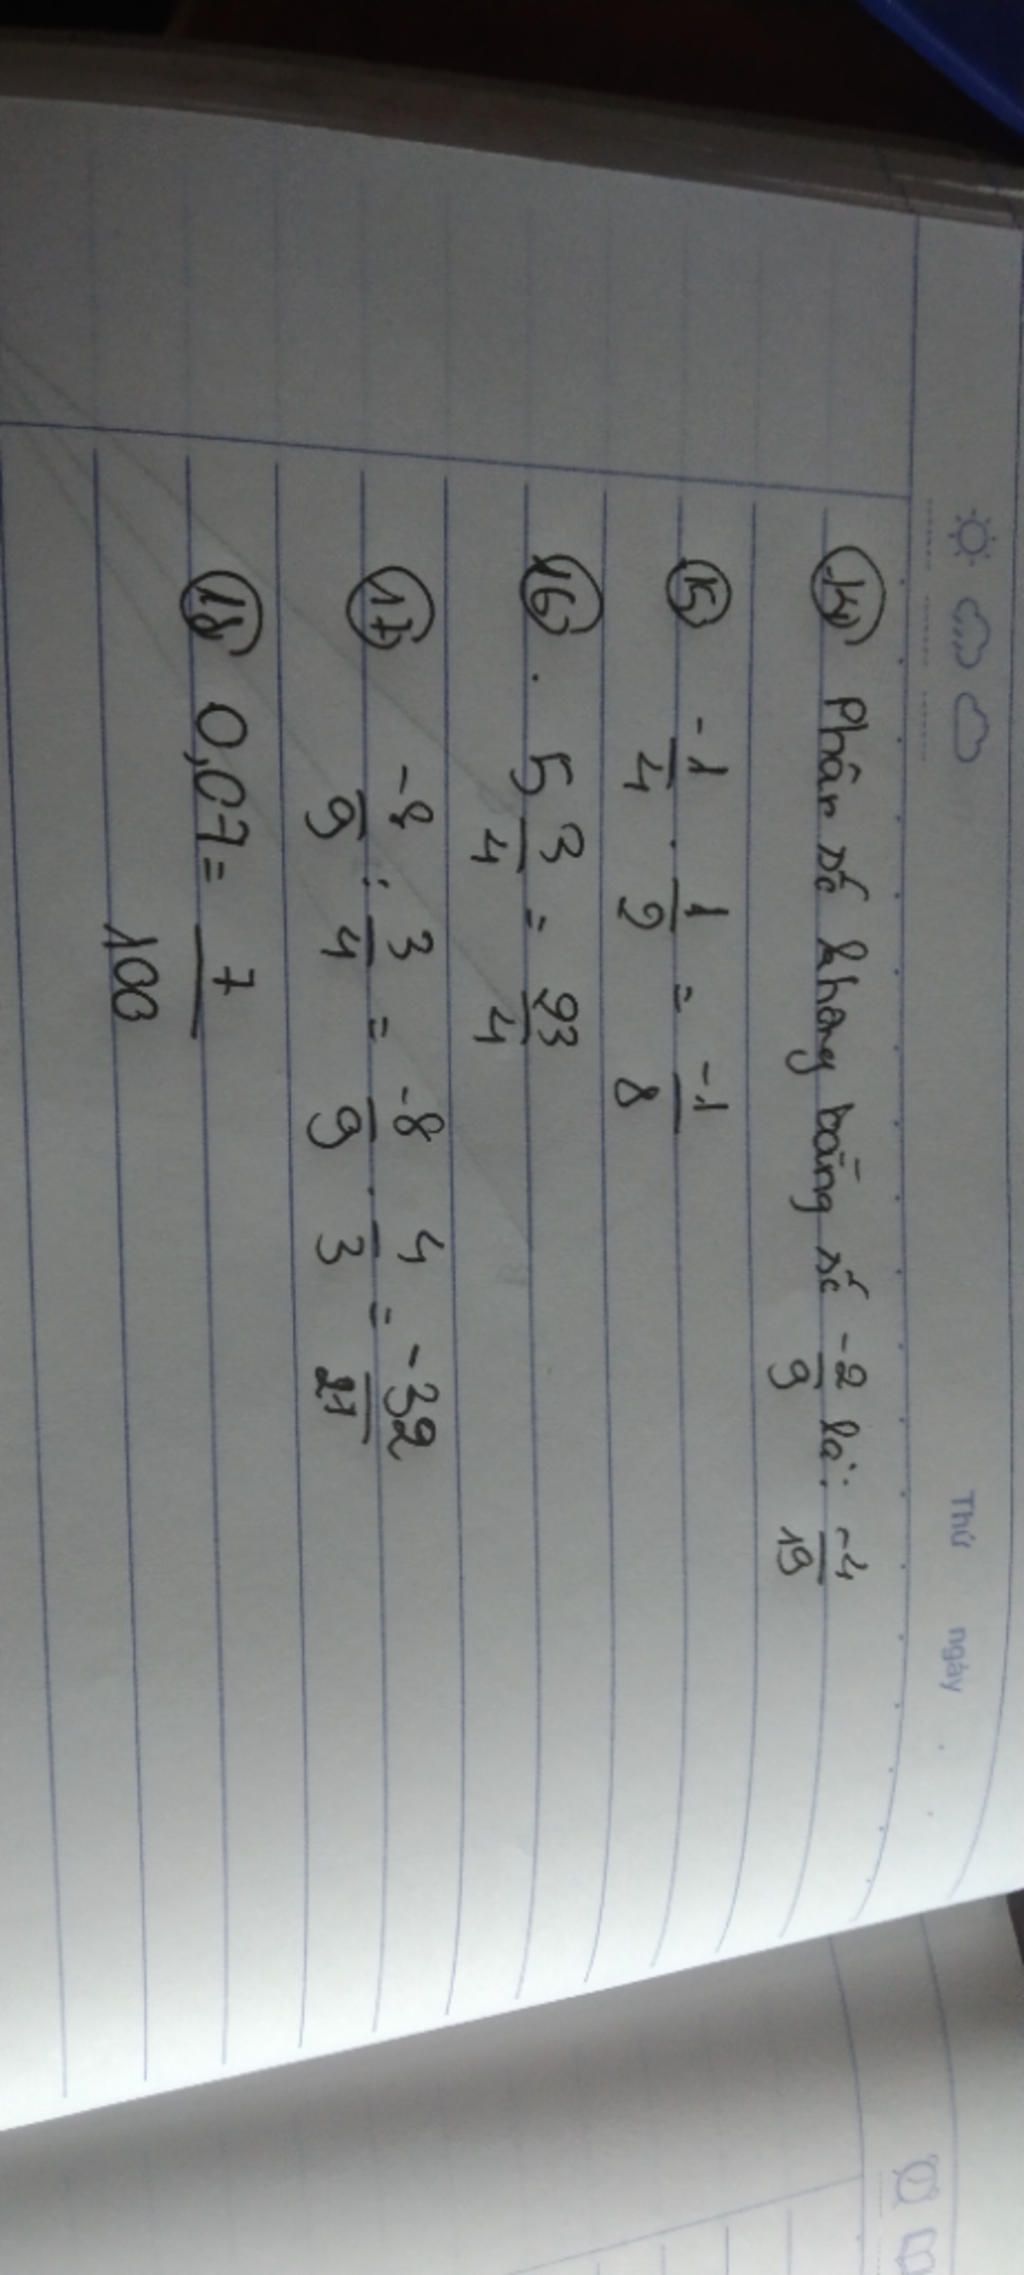 Thứ ngày
14 Phân số không bằng số -2/9 là: -4/19
15 -1/4 . 1/2 = -1/8
16 . 5 3/4 = 23/4
17 -8/9 : 3/4 = -8/9 . 4/3 = -32/27
18 0,07 = 7/100